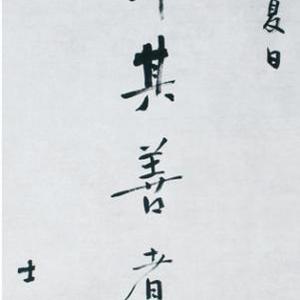 夏日
其善者
士